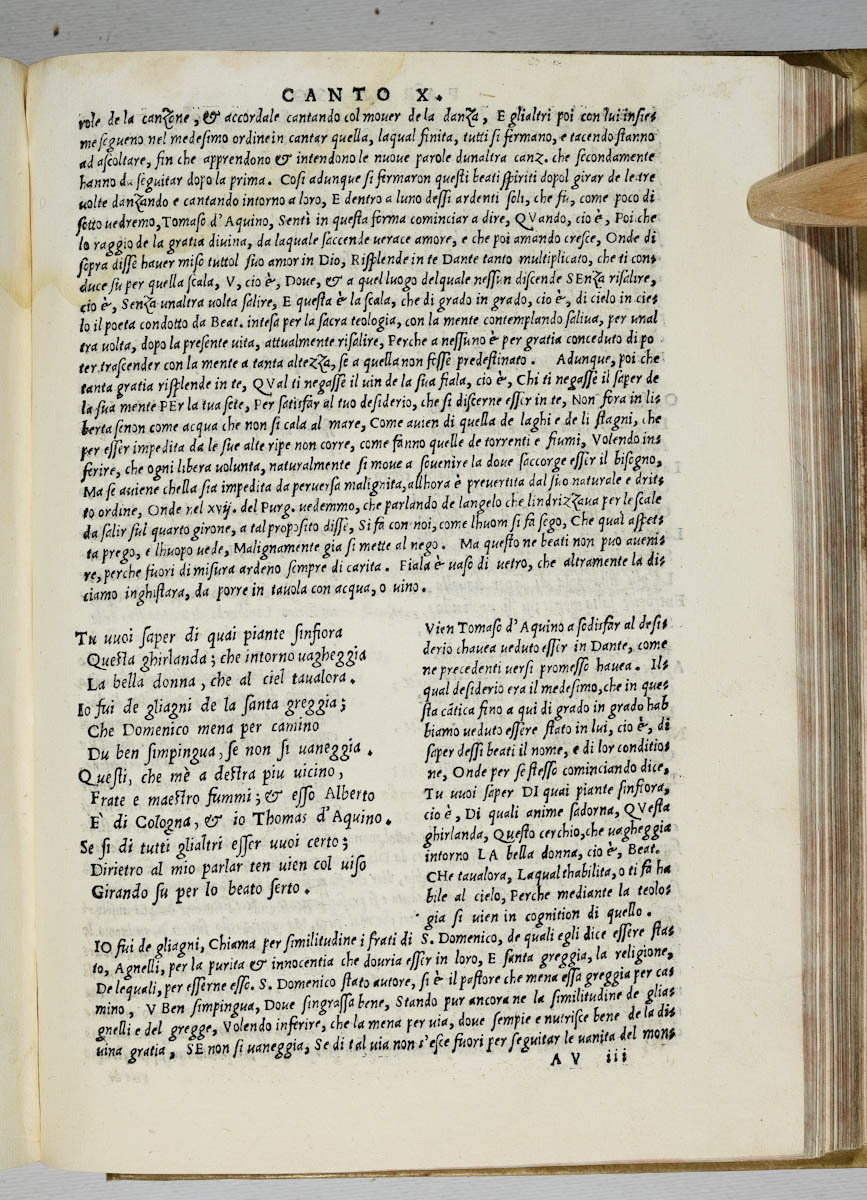 CANTO X.
uole de la canzone, & accordale cantando col mouer de la danza, E glialtri poi con lui insie=
me segueno nel medesimo ordine in cantar quella, laqual finita, tutti si fermano, e tacendo stanno
ad ascoltare, fin che apprendono & intendono le nuoue parole dunaltra canz. che secondamente
hanno da seguitar dopo la prima. Cosi adunque si fermaron questi beati spiriti dopol girar de le tre
uolte danzando e cantando intorno a loro, E dentro a luno dessi ardenti soli, che fu, come poco di
sotto uedremo, Tomaso d'Aquino, Senti in questa forma cominciar a dire, QVando, cio è, Poi che
lo raggio de la gratia diuina, da laquale saccende uerace amore, e che poi amando cresce, Onde di
sopra disse hauer miso tuttol suo amor in Dio, Risplende in te Dante tanto multiplicato, che ti con=
duce su per quella scala, V, cio è, Doue, & a quel luogo delquale nessun discende SEnza risalire,
cio è, Senza unaltra uolta salire, E questa è la scala, che di grado in grado, cio è, di cielo in cie=
lo il poeta condotto da Beat. intesa per la sacra teologia, con la mente contemplando saliua, per unal
tra uolta, dopo la presente uita, attualmente risalire, Perche a nessuno è per gratia conceduto di po
ter trascender con la mente a tanta altezza, se a quella non fosse predestinato. Adunque, poi che
tanta gratia risplende in te, QVal ti negasse il uin de la sua fiala, cio è, Chi ti negasse il saper de
la sua mente PEr la tua sete, Per satisfar al tuo desiderio, che si discerne esser in te, Non fora in li=
berta senon come acqua che non si cala al mare, Come auien di quella de laghi e de li stagni, che
per esser impedita da le sue alte ripe non corre, come fanno quelle de torrenti e fiumi, Volendo in=
ferire, che ogni libera uolunta, naturalmente si moue a souenire la doue saccorge esser il bisogno,
Ma se auiene chella sia impedita da peruersa malignita, allhora è preuertita dal suo naturale e drit=
to ordine, Onde nel xvij. del Purg. uedemmo, che parlando de langelo che lindrizzaua per le scale
da salir sul quarto girone, a tal proposito disse, Si fa con noi, come lhuom si fa sego, Che qual aspet=
ta prego, e lhuopo uede, Malignamente gia si mette al nego. Ma questo ne beati non puo aueni=
re, perche fuori di misura ardeno sempre di carita. Fiala è uaso di uetro, che altramente la di=
ciamo inghistara, da porre in tauola con acqua, o uino.
Tu uuoi saper di quai piante sinfiora
Questa ghirlanda; che intorno uagheggia
La bella donna, che al ciel taualora.
Io fui de gliagni de la santa greggia;
Che Domenico mena per camino
Du ben simpingua, se non si uaneggia.
Questi, che mè a destra piu uicino,
Frate e maestro fummi; & esso Alberto
E' di Cologna, & io Thomas d'Aquino.
Se si di tutti glialtri esser uuoi certo;
Dirietro al mio parlar ten uien col uiso
Girando su per lo beato serto.
Vien Tomaso d'Aquino a sodisfar al desi=
derio chauea ueduto esser in Dante, come
ne precedenti uersi promesso hauea. Il=
qual desiderio era il medesimo, che in que=
sta cãtica fino a qui di grado in grado hab
biamo ueduto essere stato in lui, cio è, di
saper dessi beati il nome, e di lor conditio=
ne, Onde per se stesso cominciando dice,
Tu uuoi saper DI quai piante sinfiora,
cio è, Di quali anime sadorna, QVesta
ghirlanda, Questo cerchio, che uagheggia
intorno LA bella donna, cio è, Beat.
CHe taualora, Laqual thabilita, o ti fa ha
bile al cielo, Perche mediante la teolo=
gia si uien in cognition di quello.
IO fui de gliagni, Chiama per similitudine i frati di S. Domenico, de quali egli dice essere sta=
to, Agnelli, per la purita & innocentia che douria esser in loro, E santa greggia, la religione,
De lequali, per esserne esso. S. Domenico stato autore, si è il pastore che mena essa greggia per ca=
mino, V Ben simpingua, Doue singrassa bene, Stando pur ancora ne la similitudine de glia=
gnelli e del gregge, Volendo inferire, che la mena per uia, doue sempie e nutrisce bene de la di=
uina gratia, SE non si uaneggia, Se di tal uia non s'esce fuori per seguitar le uanita del mon=
AV iii